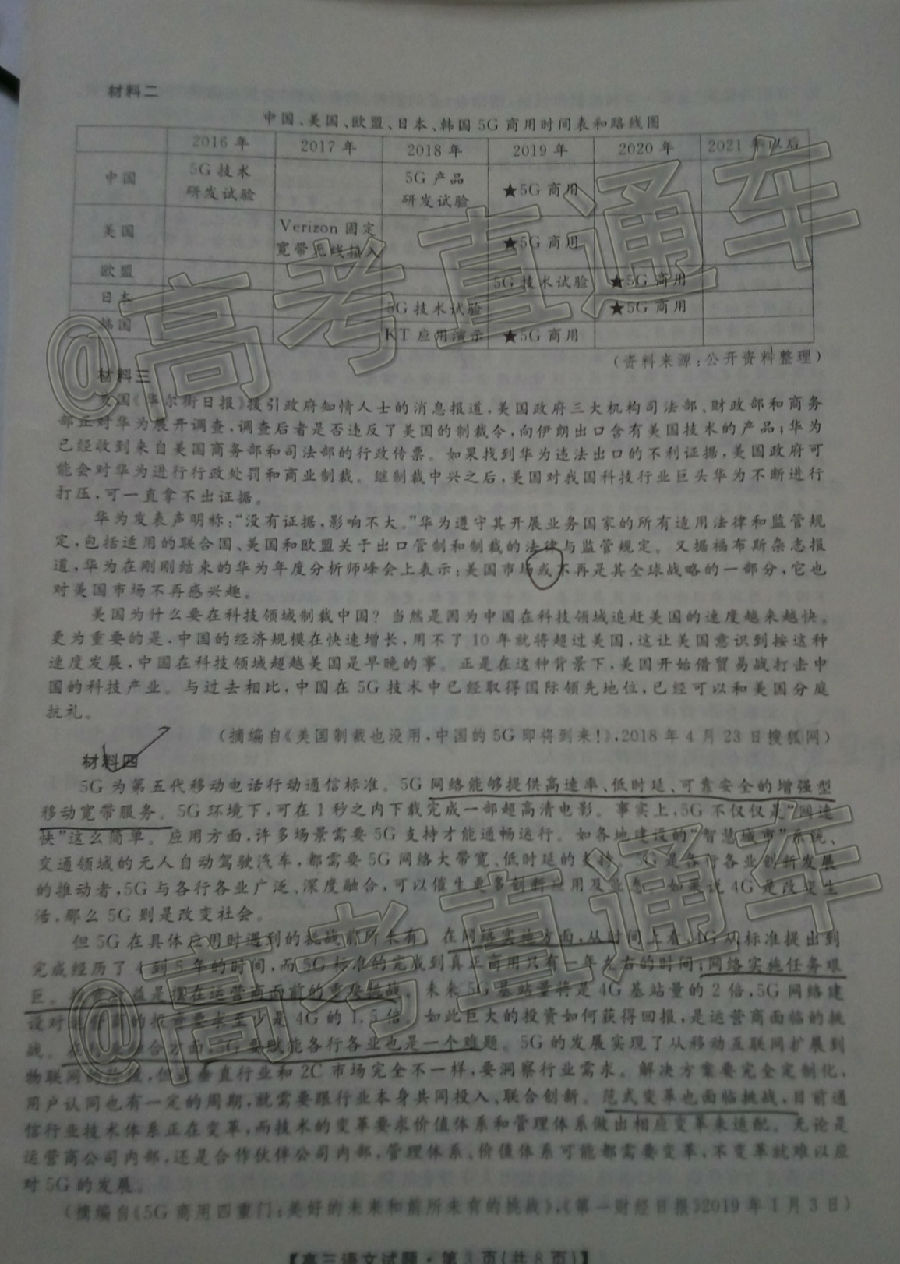 材料二
中国、美国、欧盟、日本、韩国5G商用时间表和路线图
2016年 2017年 2018年 2019年 2020年 2021年以后
中国 5G技术研发试验 5G产品研发试验 ★5G商用
美国 Verizon固定宽带无线接入 ★5G商用
欧盟 5G技术试验 ★5G商用
日本 5G技术试验 ★5G商用
韩国 KT应用演示 ★5G商用
(资料来源:公开资料整理)
材料三
美国《华尔街日报》援引政府知情人士的消息报道,美国政府三大机构司法部、财政部和商务
部正对华为展开调查,调查后者是否违反了美国的制裁令,向伊朗出口含有美国技术的产品;华为
已经收到来自美国商务部和司法部的行政传票。如果找到华为违法出口的不利证据,美国政府可
能会对华为进行行政处罚和商业制裁。继制裁中兴之后,美国对我国科技行业巨头华为不断进行
打压,可一直拿不出证据。
华为发表声明称:“没有证据,影响不大。”华为遵守其开展业务国家的所有适用法律和监管规
定,包括适用的联合国、美国和欧盟关于出口管制和制裁的法律与监管规定。又据福布斯杂志报
道,华为在刚刚结束的华为年度分析师峰会上表示:美国市场或不再是其全球战略的一部分,它也
对美国市场不再感兴趣。
美国为什么要在科技领域制裁中国?当然是因为中国在科技领域追赶美国的速度越来越快。
更为重要的是,中国的经济规模在快速增长,用不了10年就将超过美国,这让美国意识到按这种
速度发展,中国在科技领域超越美国是早晚的事。正是在这种背景下,美国开始借贸易战打击中
国的科技产业。与过去相比,中国在5G技术中已经取得国际领先地位,已经可以和美国分庭
抗礼。
(摘编自《美国制裁也没用,中国的5G即将到来!》,2018年4月23日搜狐网)
材料四
5G为第五代移动电话行动通信标准。5G网络能够提供高速率、低时延、可靠安全的增强型
移动宽带服务。5G环境下,可在1秒之内下载完成一部超高清电影。事实上,5G不仅仅是“网速
快”这么简单。应用方面,许多场景需要5G支持才能通畅运行。如各地建设的“智慧城市”系统、
交通领域的无人自动驾驶汽车,都需要5G网络大带宽、低时延的支持。5G是各行各业创新发展
的推动者,5G与各行各业广泛、深度融合,可以催生更多创新应用及业态。如果说4G是改变生
活,那么5G则是改变社会。
但5G在具体应用时遇到的挑战前所未有。在网络实施方面,从时间上看,4G从标准提出到
完成经历了4到5年的时间,而5G标准的完成到真正商用只有一年左右的时间,网络实施任务艰
巨。投资收益是摆在运营商面前的重要挑战。未来5G基站量将是4G基站量的2倍,5G网络建
设对运营商的投资要求至少是4G的1.5倍。如此巨大的投资如何获得回报,是运营商面临的挑
战。在业务融合方面,5G要赋能各行各业也是一个难题。5G的发展实现了从移动互联网扩展到
物联网的阶段,但是垂直行业和2C市场完全不一样,要洞察行业需求。解决方案要完全定制化,
用户认同也有一定的周期,就需要跟行业本身共同投入、联合创新。范式变革也面临挑战,目前通
信行业技术体系正在变革,而技术的变革要求价值体系和管理体系做出相应变革来适配。无论是
运营商公司内部,还是合作伙伴公司内部,管理体系、价值体系可能都需要变革,不变革就难以应
对5G的发展。
(摘编自《5G商用四重门:美好的未来和前所未有的挑战》,《第一财经日报》2019年1月3日)
【高三语文试题·第3页(共8页)】
@高考直通车
@高考直通车